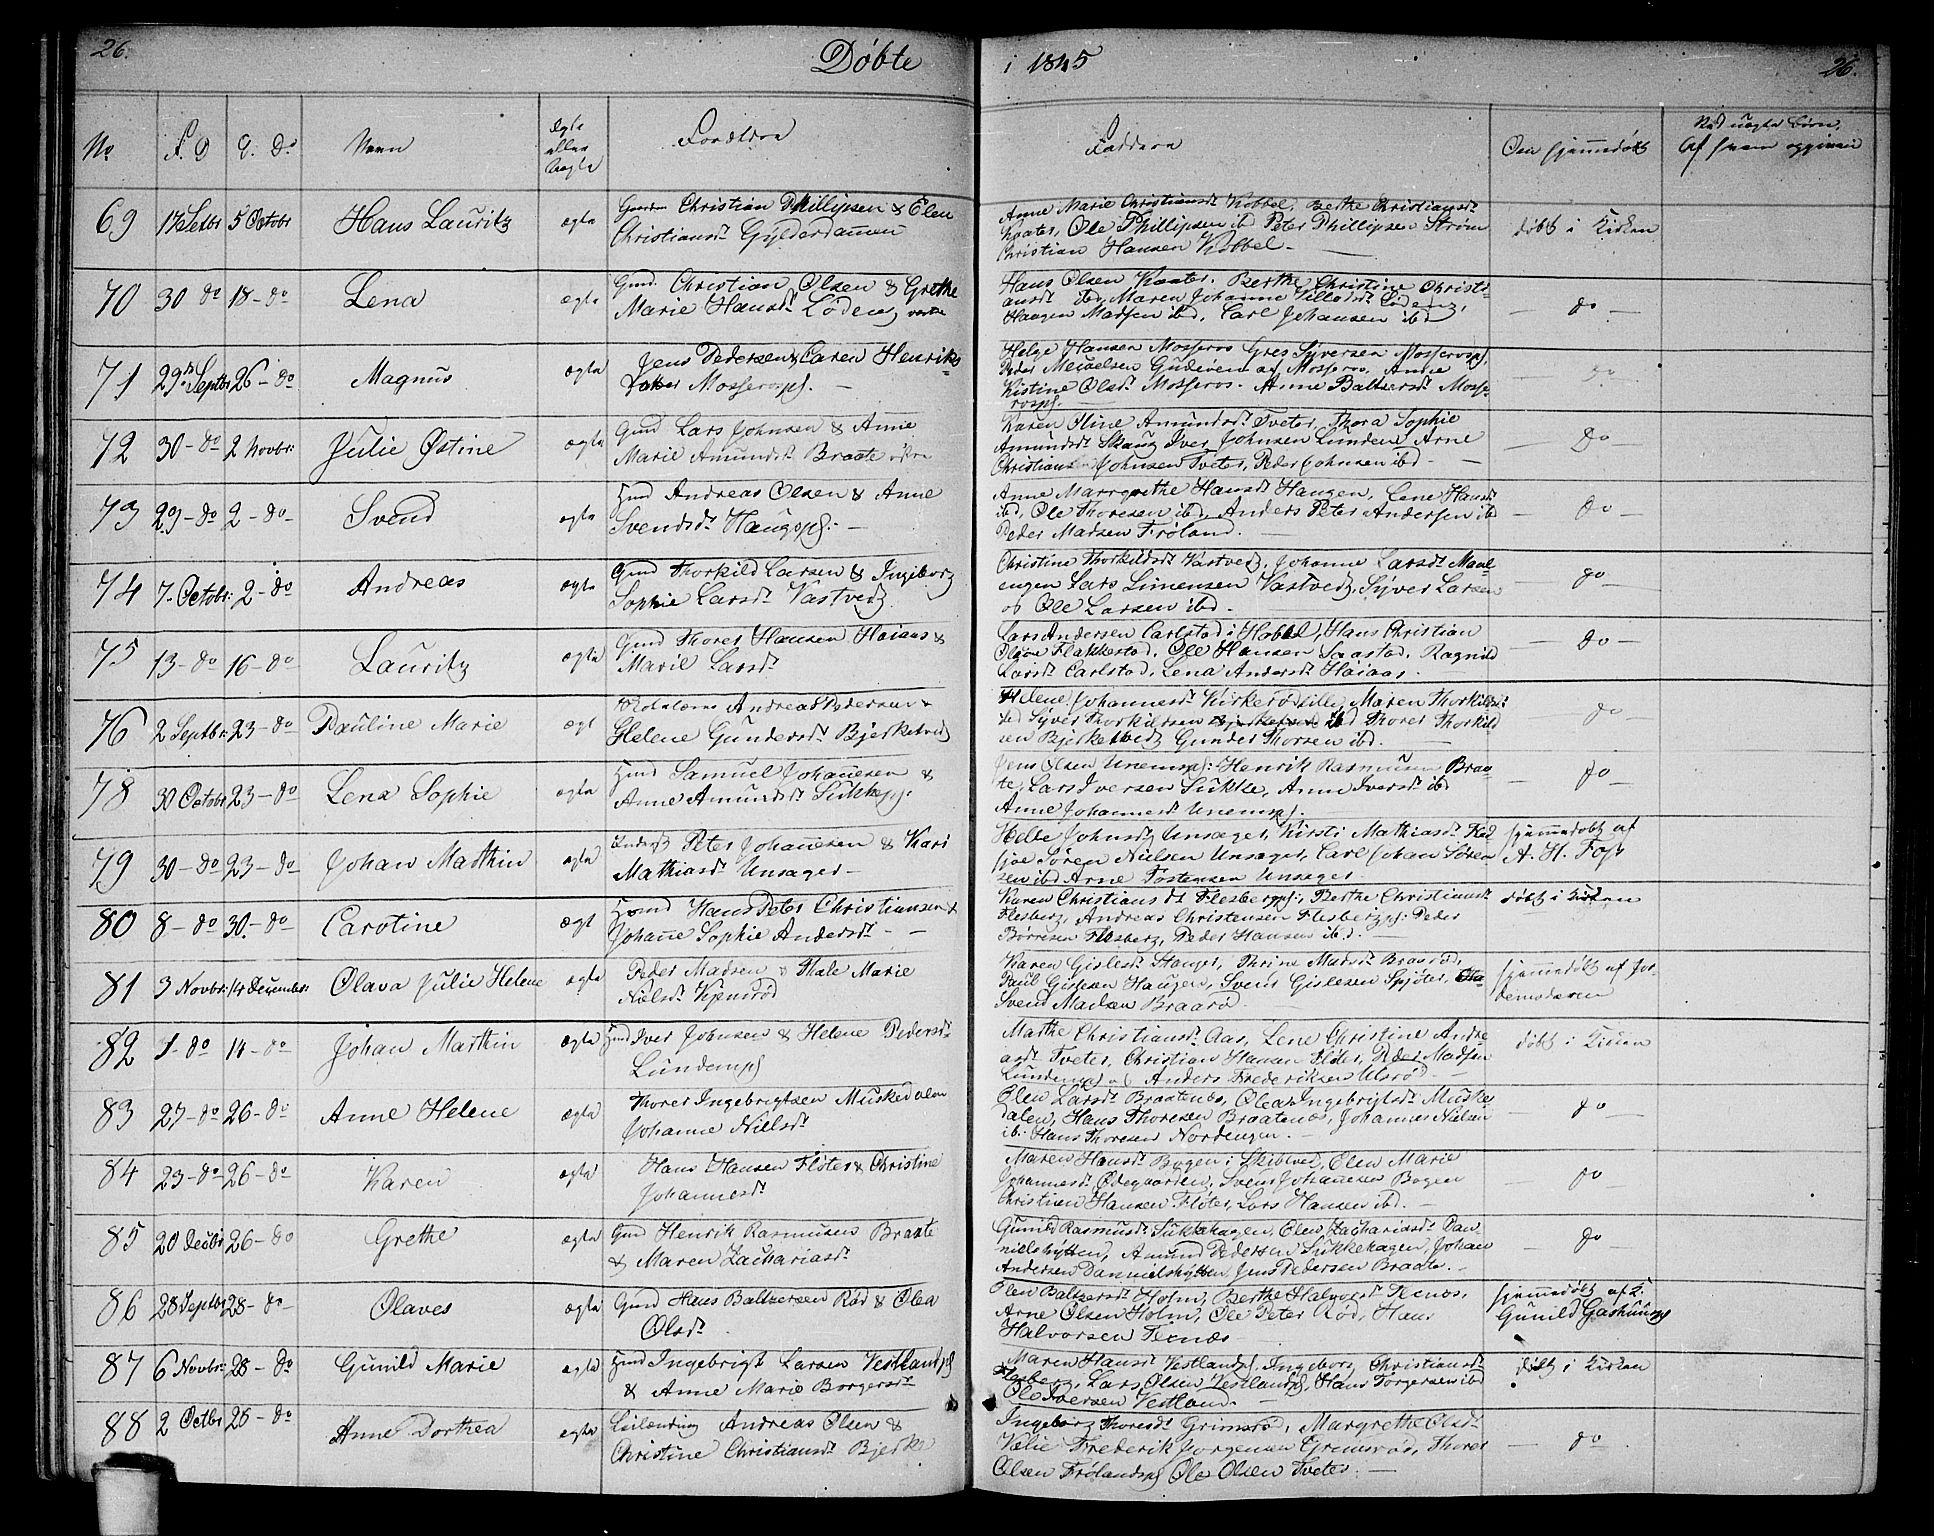 26. Døbte i 1845 26.
No F. D D. Do Navn ægte eller uægte Forældre Faddere Om hjemmedøbt Ved uægte Børn, Af hvem opgiven
69 17 Septbr 5 Octobr Hans Lauritz ægte Christian Phillipsen & Elen
Christiansdr Gylderdammen
Anne Marie Christiansdr Kobbel, Berthe Christiansdr
Kaater, Ole Phillipsen ibd Peter Phillipsen Strøm
Christian Hansen Kobbel – døbt i Kirken
70 30 – do 18 – do Lena ægte Gmd. Christian Olsen & Grethe
Marie Hansdr Løden
Hans Olsen Kaater. Berthe Christine Christi-
ansdr ibd, Maren Johanne Villadsdr Løden,
Haagen Madsen ibd, Carl Johansen ibd – do –
71 29 Septbr 26 – do Magnus ægte Jens Pedersen & Caren Henriks
Mosserosp. –
Helge Hansen Mosseros Gres Syversen Mosserosp.
Peder Micaelsen af Mosseros, Anne
Kistine Olsdr Mosseros. Anne Baltzersdr Mosse-
rosp. – do –
72 30 – do 2 Novbr: Julie Østine ægte Gmd Lars Johnsen & Anne
Marie Amundsdr Braate
Karen Oline Amundsdr Tveter, Thora Sophie
Amundsdr Skaug Iver Johnsen Lunden, Arne
Christiansen Johnsen Tveter, Peder Johnsen ibd – – do –
73 29 – do 2 – do – Svend ægte Hmd Andreas Olsen & Anne
Svendsdr Haugsp: –
Anne Marrgrethe Hansdr Haugen, Lene Hansdr
ibd, Ole Thoresen ibd, Anders Peter Andersen ibd
Peder Madsen Frøland. – – do –
74 7 – Octobr: 2 – do Andreas ægte Gmd Thorkild Larsen & Ingeborg
Sophie Larsdr Vastvedt
Christine Thorkildsdr Vastvedt, Johanne Larsdr Maal-
engen Lars Simensen Vastvedt, Syver Larsen
og Ole Larsen ibd. – – do –
75 13 – do 16 – do Lauritz ægte Gmd Thorer Hansen Haiaas &
Marie Larsdr
Lars Andersen Carlstad i Hobøl, Hans Christian
Olsen Flakkestad, Ole Hansen Saastad, Ragnild
Larsdr Carlstad, Lena Andersdr Haiaas. – do –
76 2 Septbr: 23 – do Pauline Marie ægt Andreas Pedersen &
Helene Gundersdr Bjerketvedt
Helene Johannesdr Kirkerød lille, Maren Thorkildsdr
ibd Syver Thorkilsen ibd Thorer Thorkild
sen Bjerketvedt Gunder Thorsen ibd. – – do –
78 30 Octobr 23 – do Lena Sophie ægte Hmd Samuel Johanesen &
Anne Amundsdr Sukkesp.
Jens Olsen Unemsp: Henrik Rasmusen Braa-
te, Lars Iversen Sukke, Anne Iversdr ibd
Anne Johannesdr Unemsp. – do –
79 30 – do 23 – do Johan Marthin ægte Inderst Peter Johanesen & Kari
Mathiasdr Unsager –
Helle Johnsdr Unsager, Kirsti Mathiasdr
Sören Nielsen Unsager, Carl Johan Sören
sen ibd Arne Torstensen Unsager. hjemmedøbt af
A. H. Foss
80 8 – do 30. – do Carotine ægt Hmd Hans Peter Christiansen &
Johane Sophie Andersdr – –
Karen Christiansdr Flesbergsp:, Berthe Christiansdr
Flesberg, Andreas Christensen Flesbergsp: Peder
Börresen Flesberg, Peder Hansen ibd. – døbt i Kirken
81 3 Novbr: 14 December: Olava Julie Helene ægte Peder Madsen & Thale Marie
Nielsdr Kjensrød
Karen Gislesdr Hauger, Thrine Madsdr Braarød,
Paul Gislesen Haugen, Svend Gislesen Spjøter,
Svend Madsen Braarø – hjemmedøbt af Jor-
demoderen
82 1 – do 14 – do Johan Marthin ægte Hmd Iver Johnsen & Helene Pedersdr
Lundemsp
Marthe Christiansdr Aas, Lene Christine Andre
asdr Tveter, Christian Hansen Fløter, Peder Madsen
Lundemsp og Anders Frederiksen Ulsrød. – døbt i Kirken
83 27 – do 26 – do Anne Helene ægte Thorer Ingebrigtsen Muskedalen
Johanne Nielsdr
Elen Larsdr Braatenes, Olea Ingebrigtsdr Muske
dalen, Hans Thoresen Braatenes, Johannes Nielsen
ib: Hans Thoresen Nordengen. – – do –
84 23 – do 26 – do Karen ægte Hans Hansen Fløter & Christine
Johannesdr
Maren Hansdr Bogen i Skibtvet, Elen Marie
Johannesdr Ødegaarden, Svend Johanesen Bogen
Christian Hansen Fløter, Lars Hansen ibd. – do –
85 20 Decbr 26 – do Grethe ægte Gmd Henrik Rasmusen Braate
& Maren Zachariasdr
Gunild Rasmusdr Sukkehagen, Elen Zachariasdr Dan-
nielshytten, Amund Pedersen Sukkehagen, Johan
Andersen Dannielshytten, Jens Pedersen Braate. – – do –
86 28 Septbr 28 – do – Olaves ægte Gmd Hans Baltzersen Rød & Olea
Olsdr.
Elen Baltzersdr Holm, Berthe Halvorsdr Texnes,
Arne Olsen Holm, Ole Peter Rød, Hans
Halvorsen Texnæs – hjemmedøbt af K.
Gunild Gashuus
87 6 Novbr: 28 – do Gunild Marie ægte Hmd Ingebrigt Larsen Vestlandsp
& Anne Marie Borgersdr
Maren Hansdr Vestlandsp, Ingeborg Christiansdr
Flesberg, Lars Olsen Vestlandsp, Hans Torgersen ibd
Ole Iversen Vestland. – døbt i Kirken
88 2 Octbr 26 – do Anne Dorthea ægte Leilending Andreas Olsen &
Christine Christiansdr Bjerke
Ingeborg Thoresdr Grimsrød, Margrethe Olsdr
Vælie Frederik Jørgensen Gremsrød, Thorer
Olsen Frølandsp Ole Olsen Tveter. – – do –